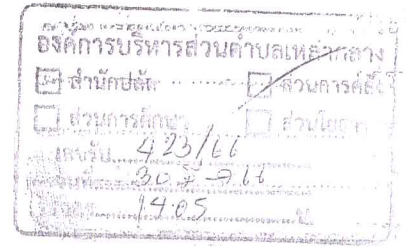 องค์การบริหารส่วนตำบลเหล่ากลาง
สำนักปลัด ส่วนการคลัง
ส่วนการศึกษา ส่วนโยธา
เลขรับ 423/66
วันที่ 30
14.05 น.